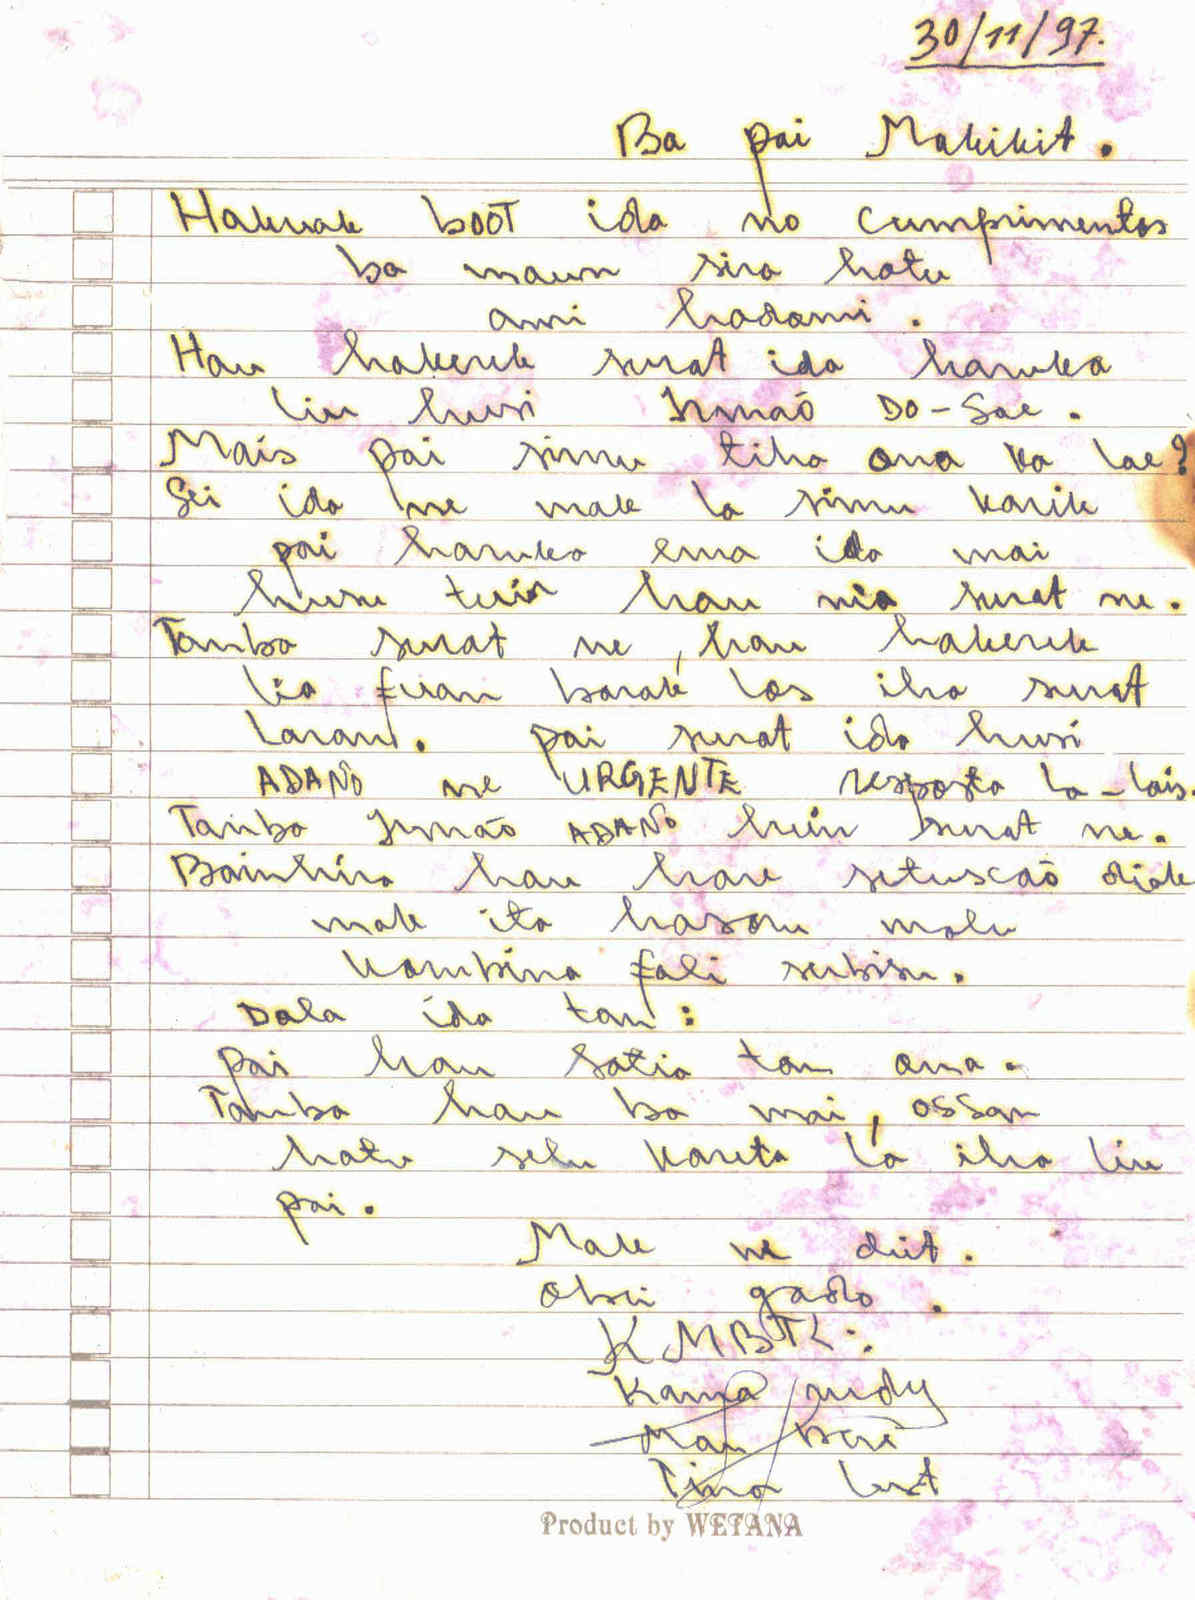 30/11/97.
Ba pai Makikit.
Hakuak bOOT ida no cumprimentos
ba maun sira hotu
ami hadomi.
Hau hakerek surat ida haruka
liu husi Irmaõ DO-Sae.
Mais pai simu tiha ona ka lae?
Sei ida ne mak la simu karik
pai haruka ema ida mai
husu tuir hau nia surat ne.
Tamba surat ne, hau hakerek
lia fuan barak los iha surat
laran. pai surat ida husi
ADANO ne URGENTE resposta la-lais.
Tamba Irmão ADANO hein surat ne.
Bainhira hau hare setuscaõ diak
mak ita hasoru malu
kombina fali serbisu.
Dala ida tan:
pai hau satia tan ona.
Tamba hau ba mai, ossan
hatu selu kareta la iha liu
pai.
Mak ne deit.
Obri gado.
K MBTL:.
Kama rudy
Mau bere
Tino lest
Product by WETANA